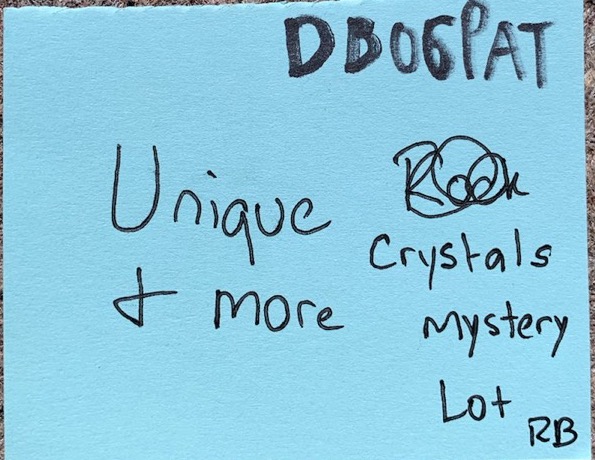 DB06PAT
Unique
+ more
Rock
Crystals
Mystery
Lot
RB